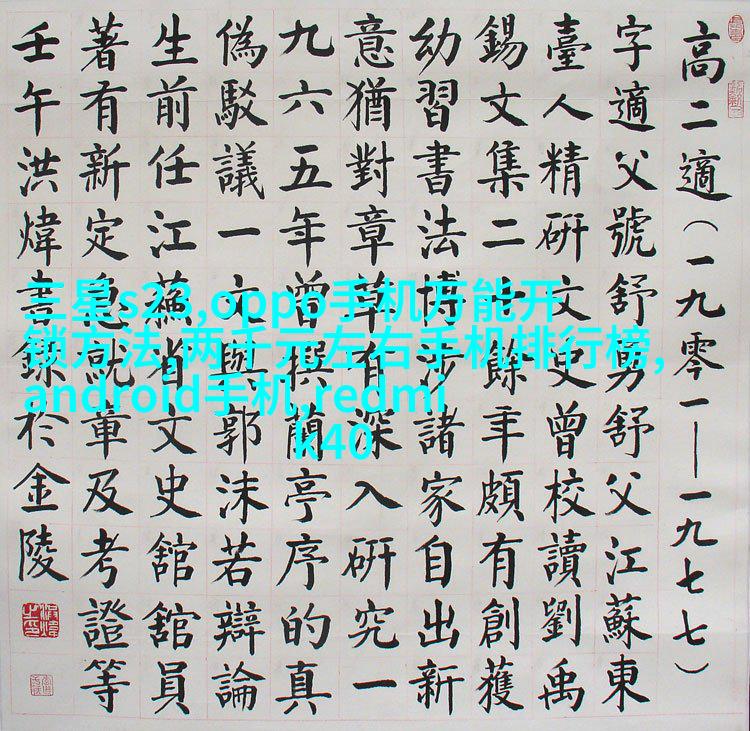 高二適（一九零一——一九七七）
字適父號舒舒父江蘇東
臺人精研文史曾校讀劉禹
錫文集二十餘年頗有創獲
幼習書法博涉諸家自出新
意猶對章草有深入研究一
九六五年曾撰蘭亭序的真
偽駁議一文與郭沫若辯論
生前任江蘇省文史舘舘員
著有新定急就章及考證等
壬午洪煒書錄於金陵
洪煒之印
三星s23,oppo手机万能开
锁方法,两千元左右手机排行榜,
android手机,redmi
k40